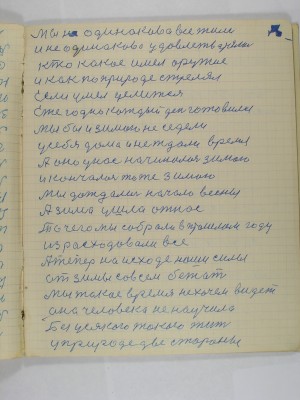 Мы не одинакова все жили
и не одинаково удовлетворяли
кто какое имел оружие
и как по природе стрелял
Если умел целится
Ежегодно каждый деп готовили
Мы бы и зимой не седели
у себя дома и не ждали время
А оно у нас начиналоя зимою
и кончалоя тоже зимою
Мы дождалия начало весны
А зима ушла от нас
То чего мы собрали в прошлом году
израсходовали все
А тепер на исходе наши силы
от зимы совсем бежат
мы такое время нехочем видет
она человека не научила
Без всякого такого жит
у природе две стороны